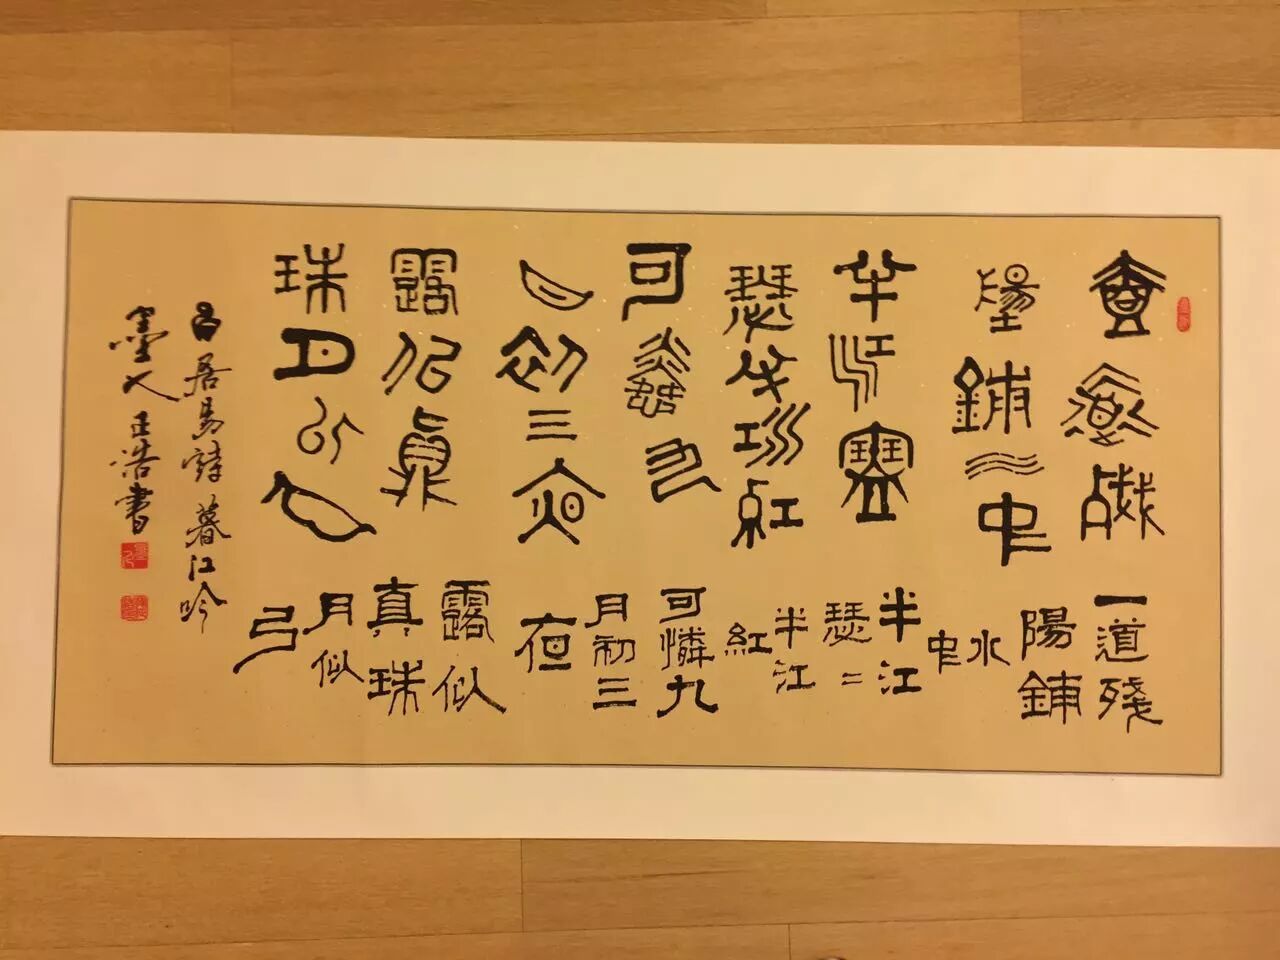 壹道殘
陽鋪水中
半江瑟
瑟半江紅
可憐九
月初三夜
露似真
珠月似弓
一道殘
陽鋪
水中
半江
瑟二
半江
紅
可憐九
月初三
夜
露似
真珠
月似
弓
白居易詩暮江吟
墨人王浩書